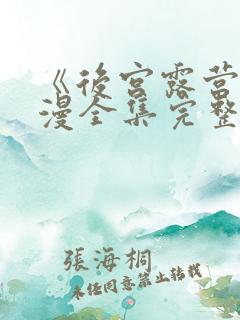 《后宫露营
漫全集完整
張海桐
未经同意禁止转载